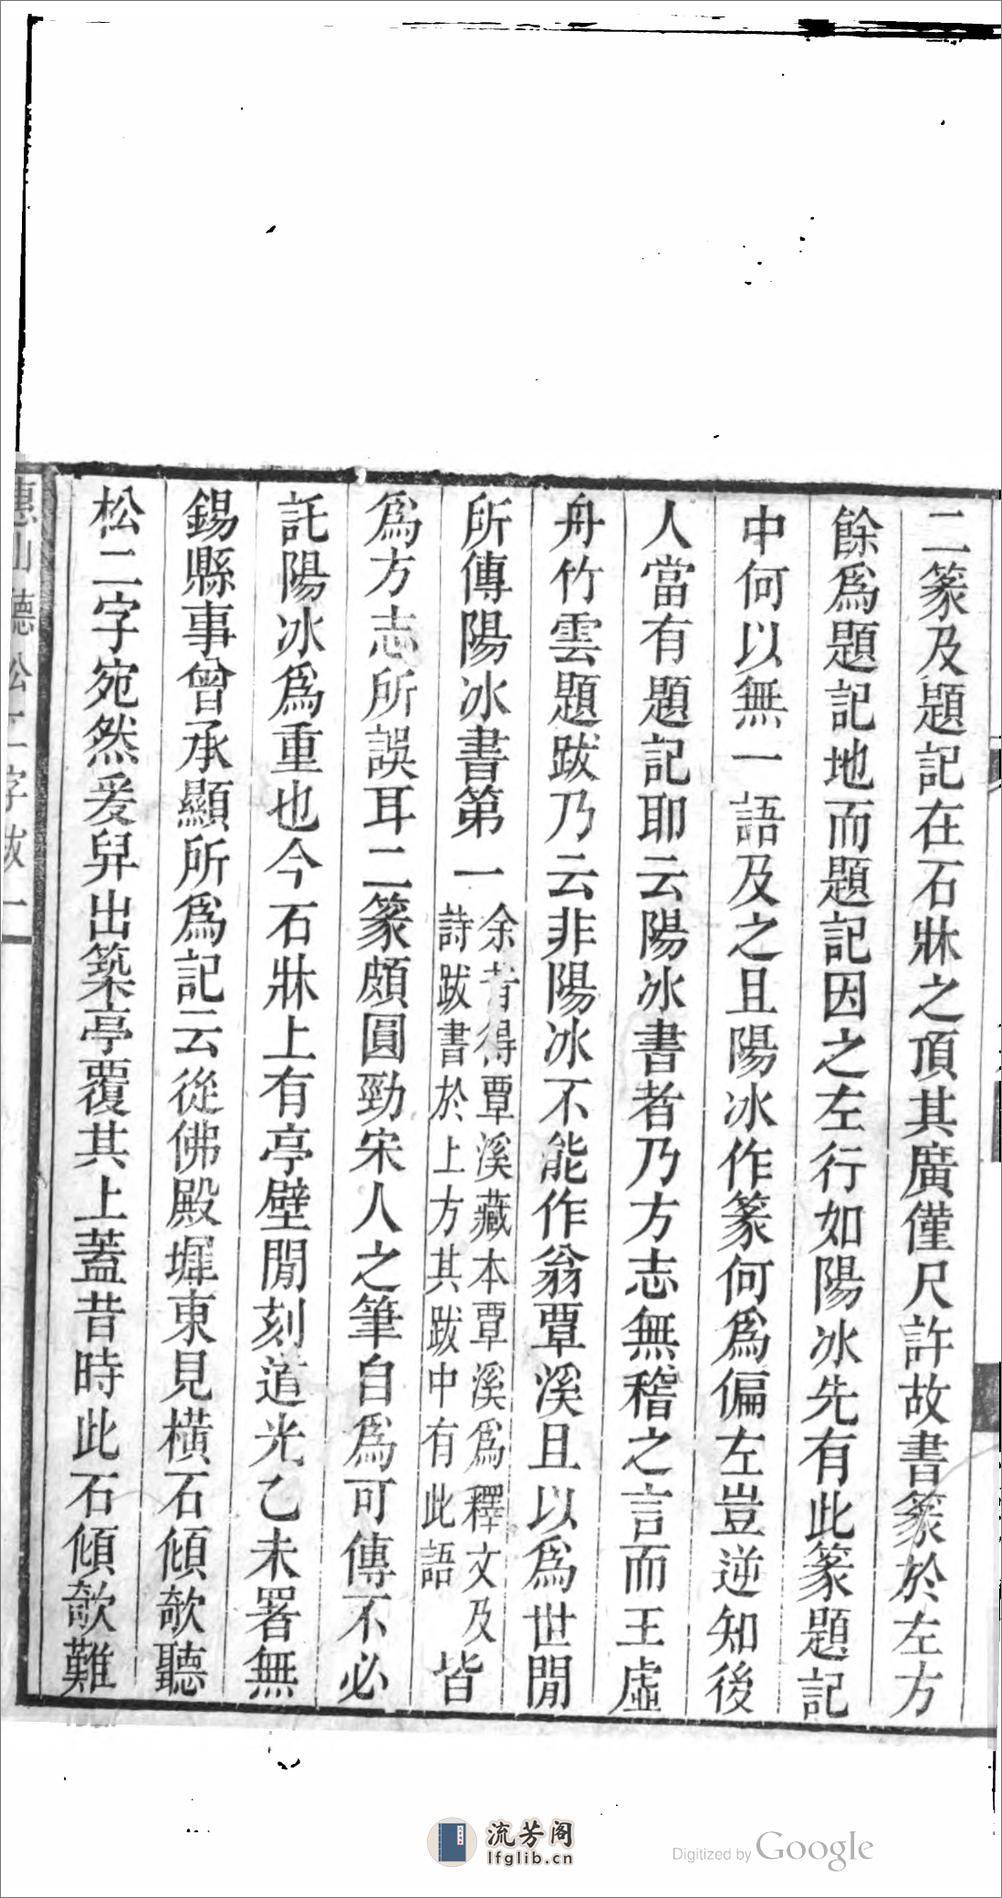 二篆及題記在石牀之頂其廣僅尺許故書篆於左方
餘爲題記地而題記因之左行如陽冰先有此篆題記
中何以無一語及之且陽冰作篆何爲偏左豈逆知後
人當有題記耶云陽冰書者乃方志無稽之言而王虛
舟竹雲題跋乃云非陽冰不能作翁覃溪且以爲世閒
所傳陽冰書第一
余昔得覃溪藏本覃溪爲釋文及
詩跋書於上方其跋中有此語
皆
爲方志所誤耳二篆頗圓勁宋人之筆自爲可傳不必
託陽冰爲重也今石牀上有亭壁閒刻道光乙未署無
錫縣事曾承顯所爲記云從佛殿墀東見橫石傾欹聽
松二字宛然爰舁出築亭覆其上蓋昔時此石傾欹難
惠山聽松二字跋一
流芳阁
lfglib.cn
Digitized by Google